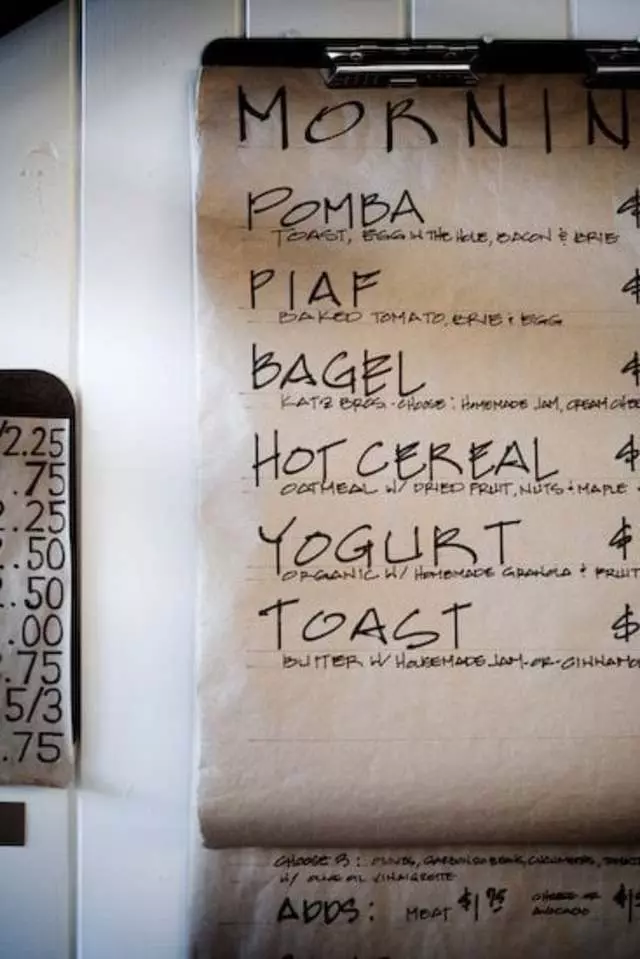 MORNIN
POMBA $
TOAST, EGG IN THE HOLE, BACON & BRIE
PIAF $
BAKED TOMATO, BRIE & EGG
BAGEL $
KATZ BROS - CHOOSE: HOMEMADE JAM, CREAM CHEE
HOT CEREAL $
OATMEAL W/ DRIED FRUIT, NUTS & MAPLE
YOGURT $
ORGANIC W/ HOMEMADE GRANOLA & FRUIT
TOAST $
BUTTER W/ HOUSEMADE JAM -OR- CINNAMO
/2.25
.75
.25
.50
.50
.00
.75
5/3
.75
CHOOSE 3: OLIVES, GARBONZO BEANS, CUCUMBERS, TOMAT
W/ OLIVE OIL VINAIGRETTE
ADDS: MEAT $1.75 CHEESE OR AVOCADO $1